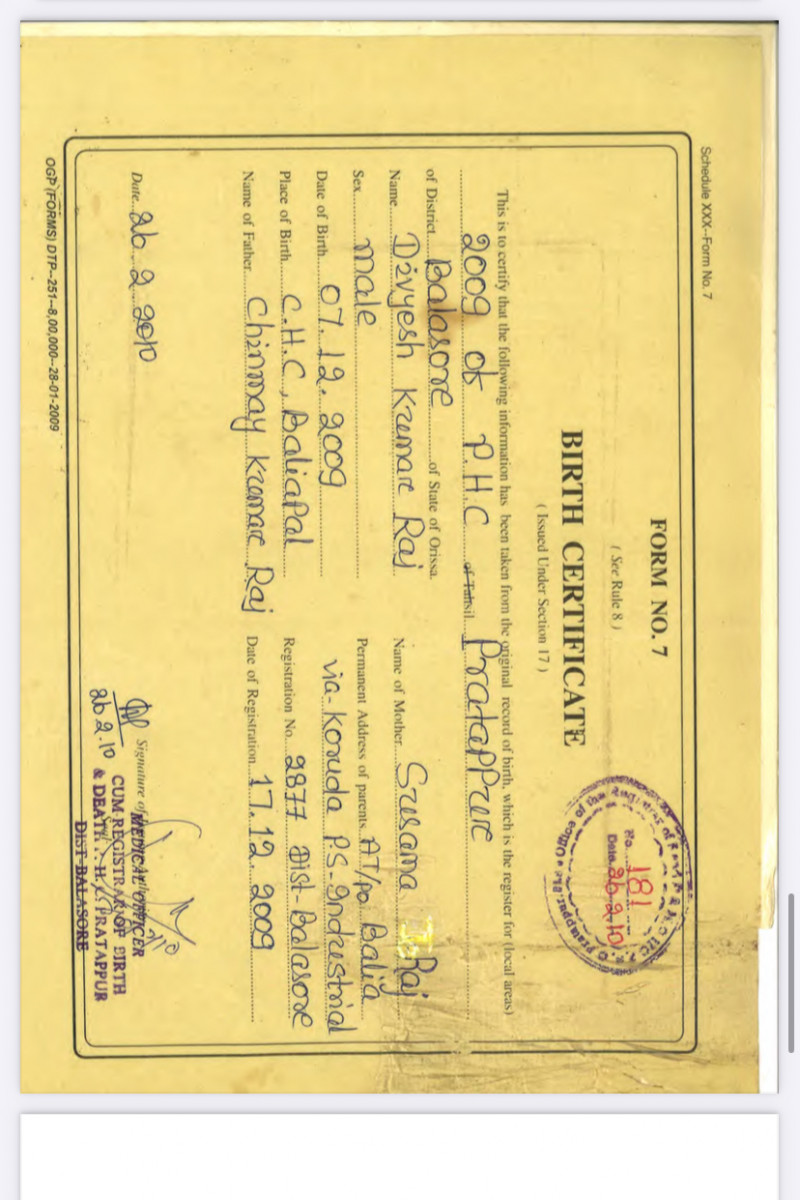 Schedule XXX--Form No. 7
FORM NO. 7
( See Rule 8 )
BIRTH CERTIFICATE
( Issued Under Section 17 )
No. 181
Date 26.2.10
This is to certify that the following information has been taken from the original record of birth, which is the register for (local areas)
2009 of P.H.C of Tahsil Pratappur
of District Balasore of State of Orissa.
Name Divyesh Kumar Raj
Sex male
Date of Birth 07.12.2009
Place of Birth C.H.C, Baliapal
Name of Father Chinmay Kumar Raj
Name of Mother Susama Raj
Permanent Address of parents AT/po Balia
via-Koruda P.S-Industrial
Registration No. 2877 Dist-Balasore
Date of Registration 17.12.2009
Date 26.2.2010
26.2.10
Signature of
MEDICAL OFFICER
CUM REGISTRAR OF BIRTH
& DEATH P.H.C. PRATAPPUR
DIST-BALASORE
OGP (FORMS) DTP--251--8,00,000--28-01-2009